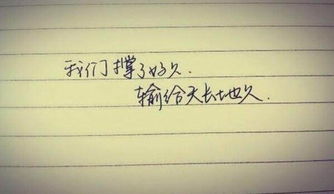 我们撑了好久.
输给天长地久.